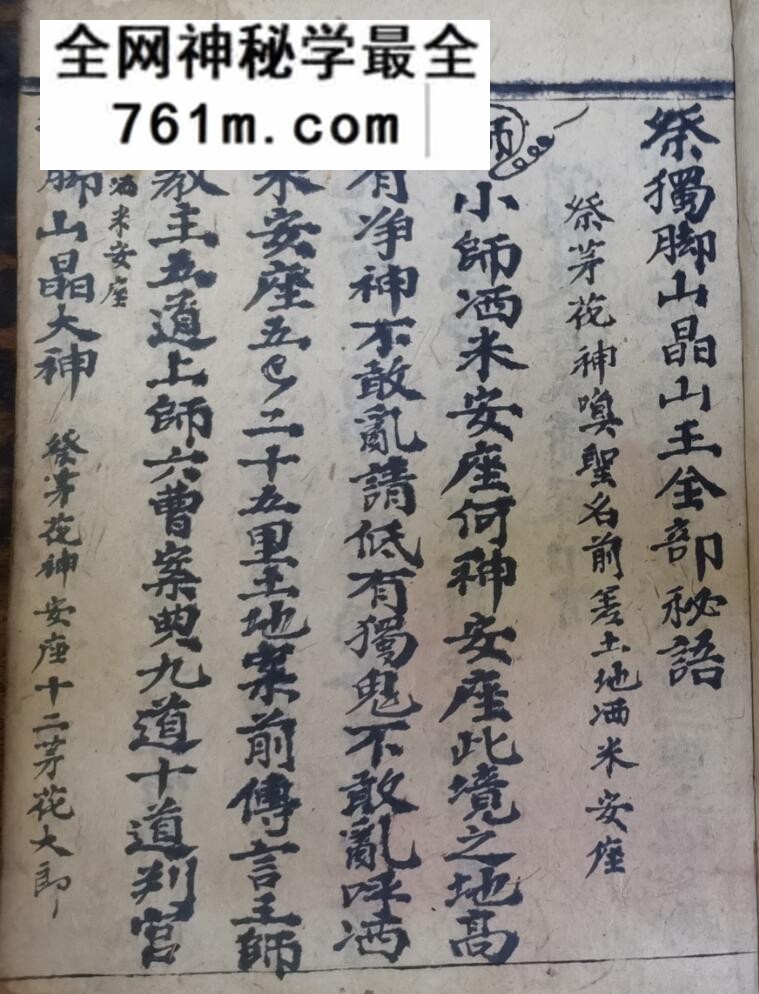 全网神秘学最全
761m.com
祭獨脚山晶山王全部秘語
祭茅花神嗅聖名前差土地洒米安座
小師洒米安座何神安座此境之地高
有净神不敢亂請低有獨鬼不敢亂呼洒
米安座五 二十五里土地案前傳言王師
教主五道上師六曹案典九道十道判官
洒米安座
脚山晶大神 祭茅花神安座十二茅花大郎